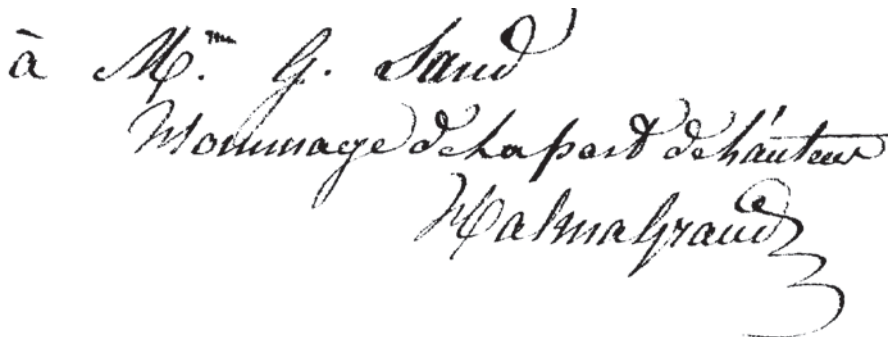 à M.me G. Sand
Hommage de la part de l'auteur
Halma Grand